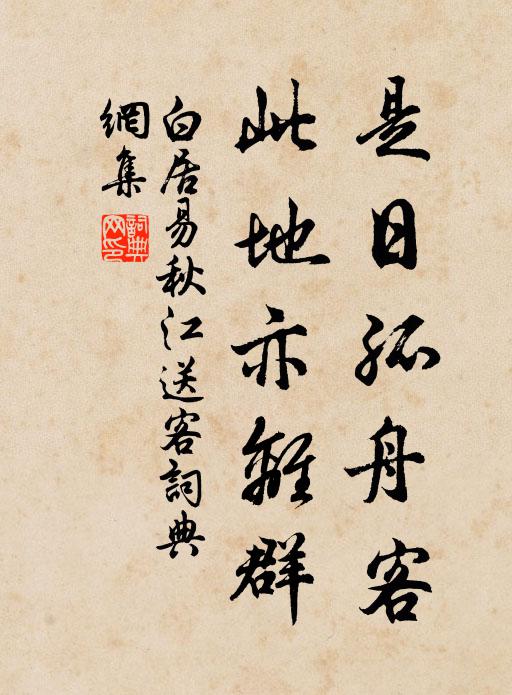 是日孤舟客
此地亦離群
白居易秋江送客詞典
網集
詞典
网印